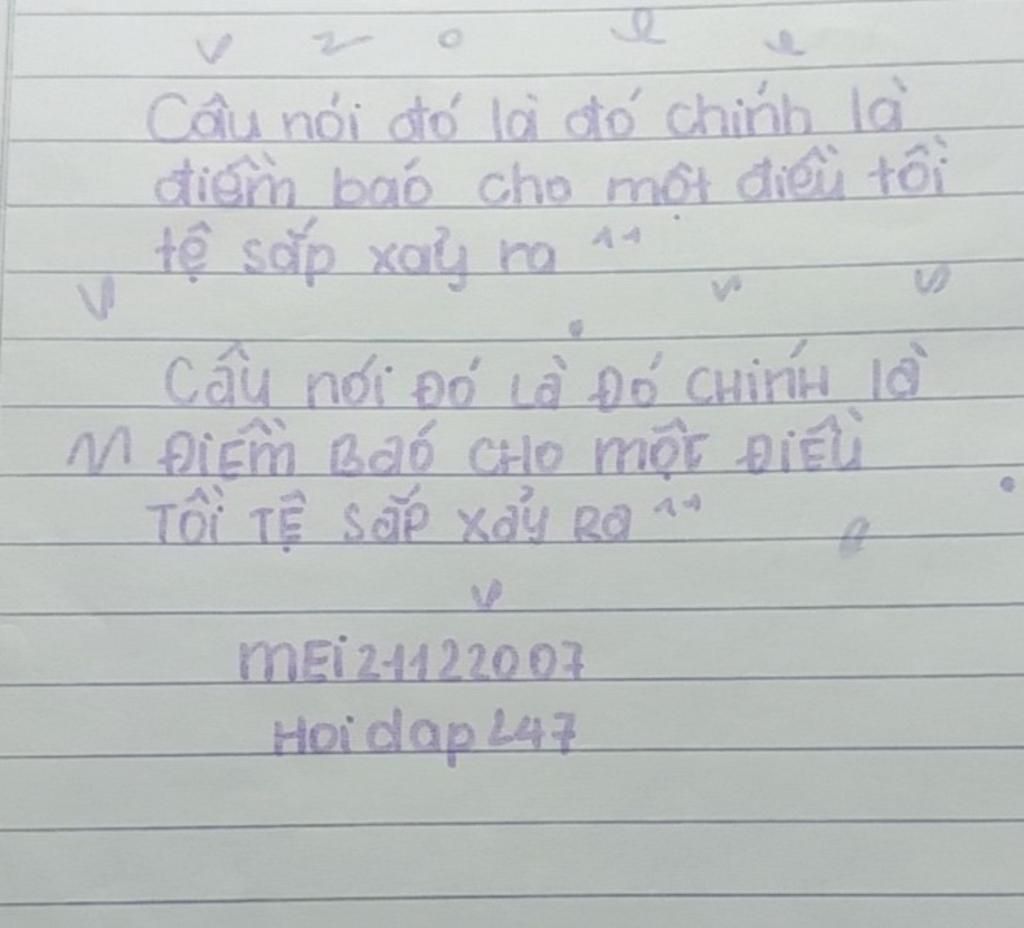 Câu nói đó là đó chính là
điềm baó cho một điều tồi
tệ sắp xảy ra ^^
Câu nói Đó Là Đó CHíNH là
ĐiỀm Baó CHO mộT ĐiỀU
Tồi TỆ SắP XảY Ra ^^
mEi21122007
Hoidap247